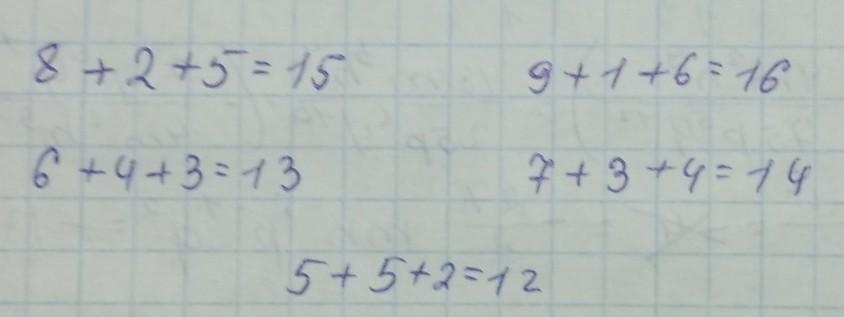 8 + 2 + 5 = 15 9 + 1 + 6 = 16
6 + 4 + 3 = 13 7 + 3 + 4 = 14
5 + 5 + 2 = 12